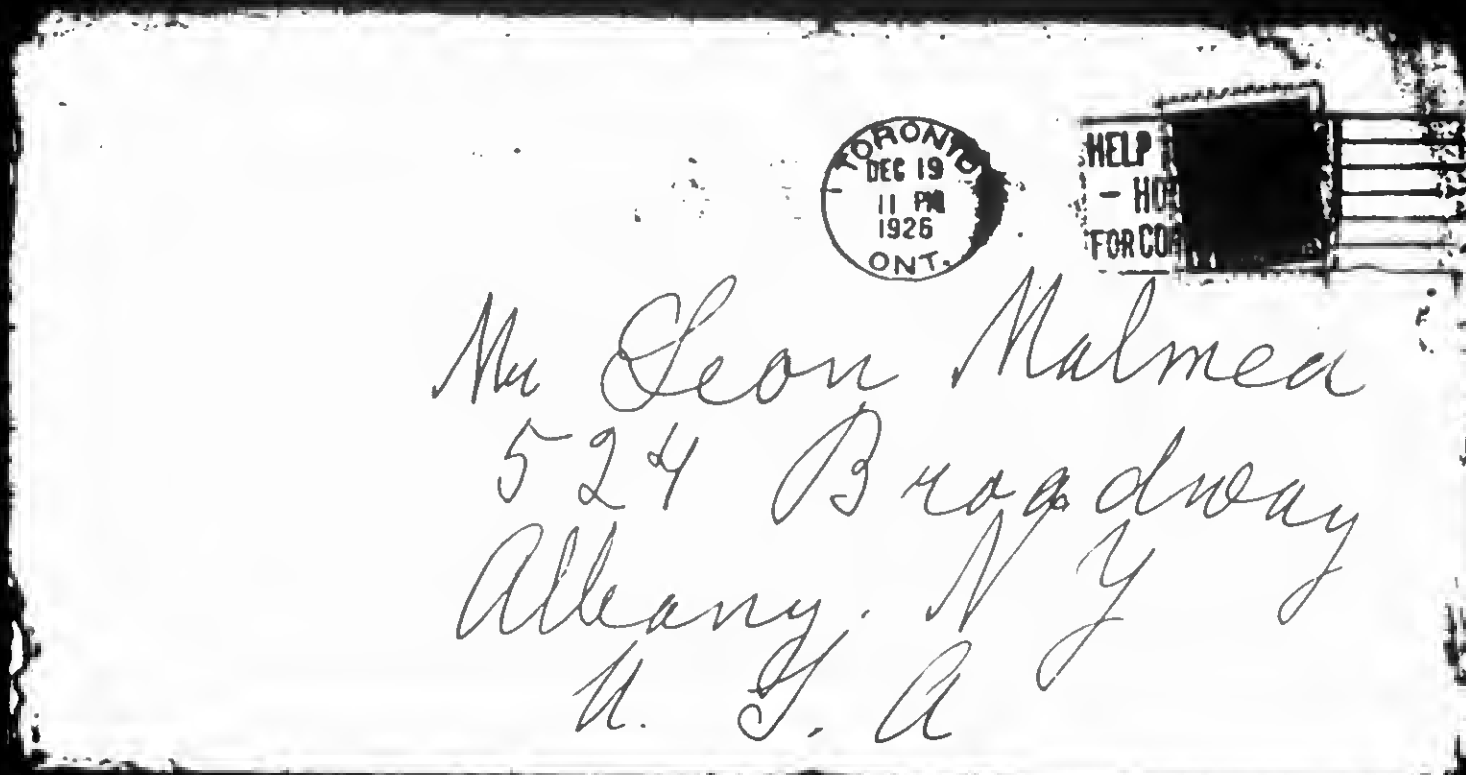 TORONTO
DEC 19
11 PM
1926
ONT.
HELP
- HO
FOR CO
Mr Leon Malmed
524 Broadway
Albany. N Y
U. S. A